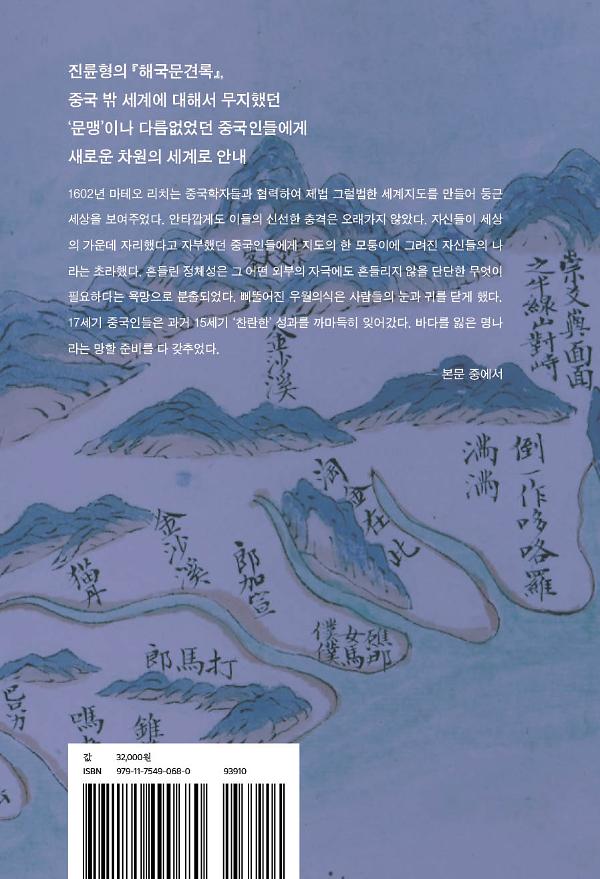 진륜형의 『해국문견록』,
중국 밖 세계에 대해서 무지했던
‘문맹’이나 다름없었던 중국인들에게
새로운 차원의 세계로 안내
1602년 마테오 리치는 중국학자들과 협력하여 제법 그럴법한 세계지도를 만들어 둥근
세상을 보여주었다. 안타깝게도 이들의 신선한 충격은 오래가지 않았다. 자신들이 세상
의 가운데 자리했다고 자부했던 중국인들에게 지도의 한 모퉁이에 그려진 자신들의 나
라는 초라했다. 흔들린 정체성은 그 어떤 외부의 자극에도 흔들리지 않을 단단한 무엇이
필요하다는 욕망으로 분출되었다. 삐뚤어진 우월의식은 사람들의 눈과 귀를 닫게 했다.
17세기 중국인들은 과거 15세기 ‘찬란한’ 성과를 까마득히 잊어갔다. 바다를 잃은 명나
라는 망할 준비를 다 갖추었다.
— 본문 중에서
崇爻與面面
之半線山對峙
金沙溪
倒一作哆咯羅
滿滿
洞金在此
金沙溪
郎加宣
猫丹
礁那
女馬
僕僕
郎馬打
값 32,000원
ISBN 979-11-7549-068-0 93910